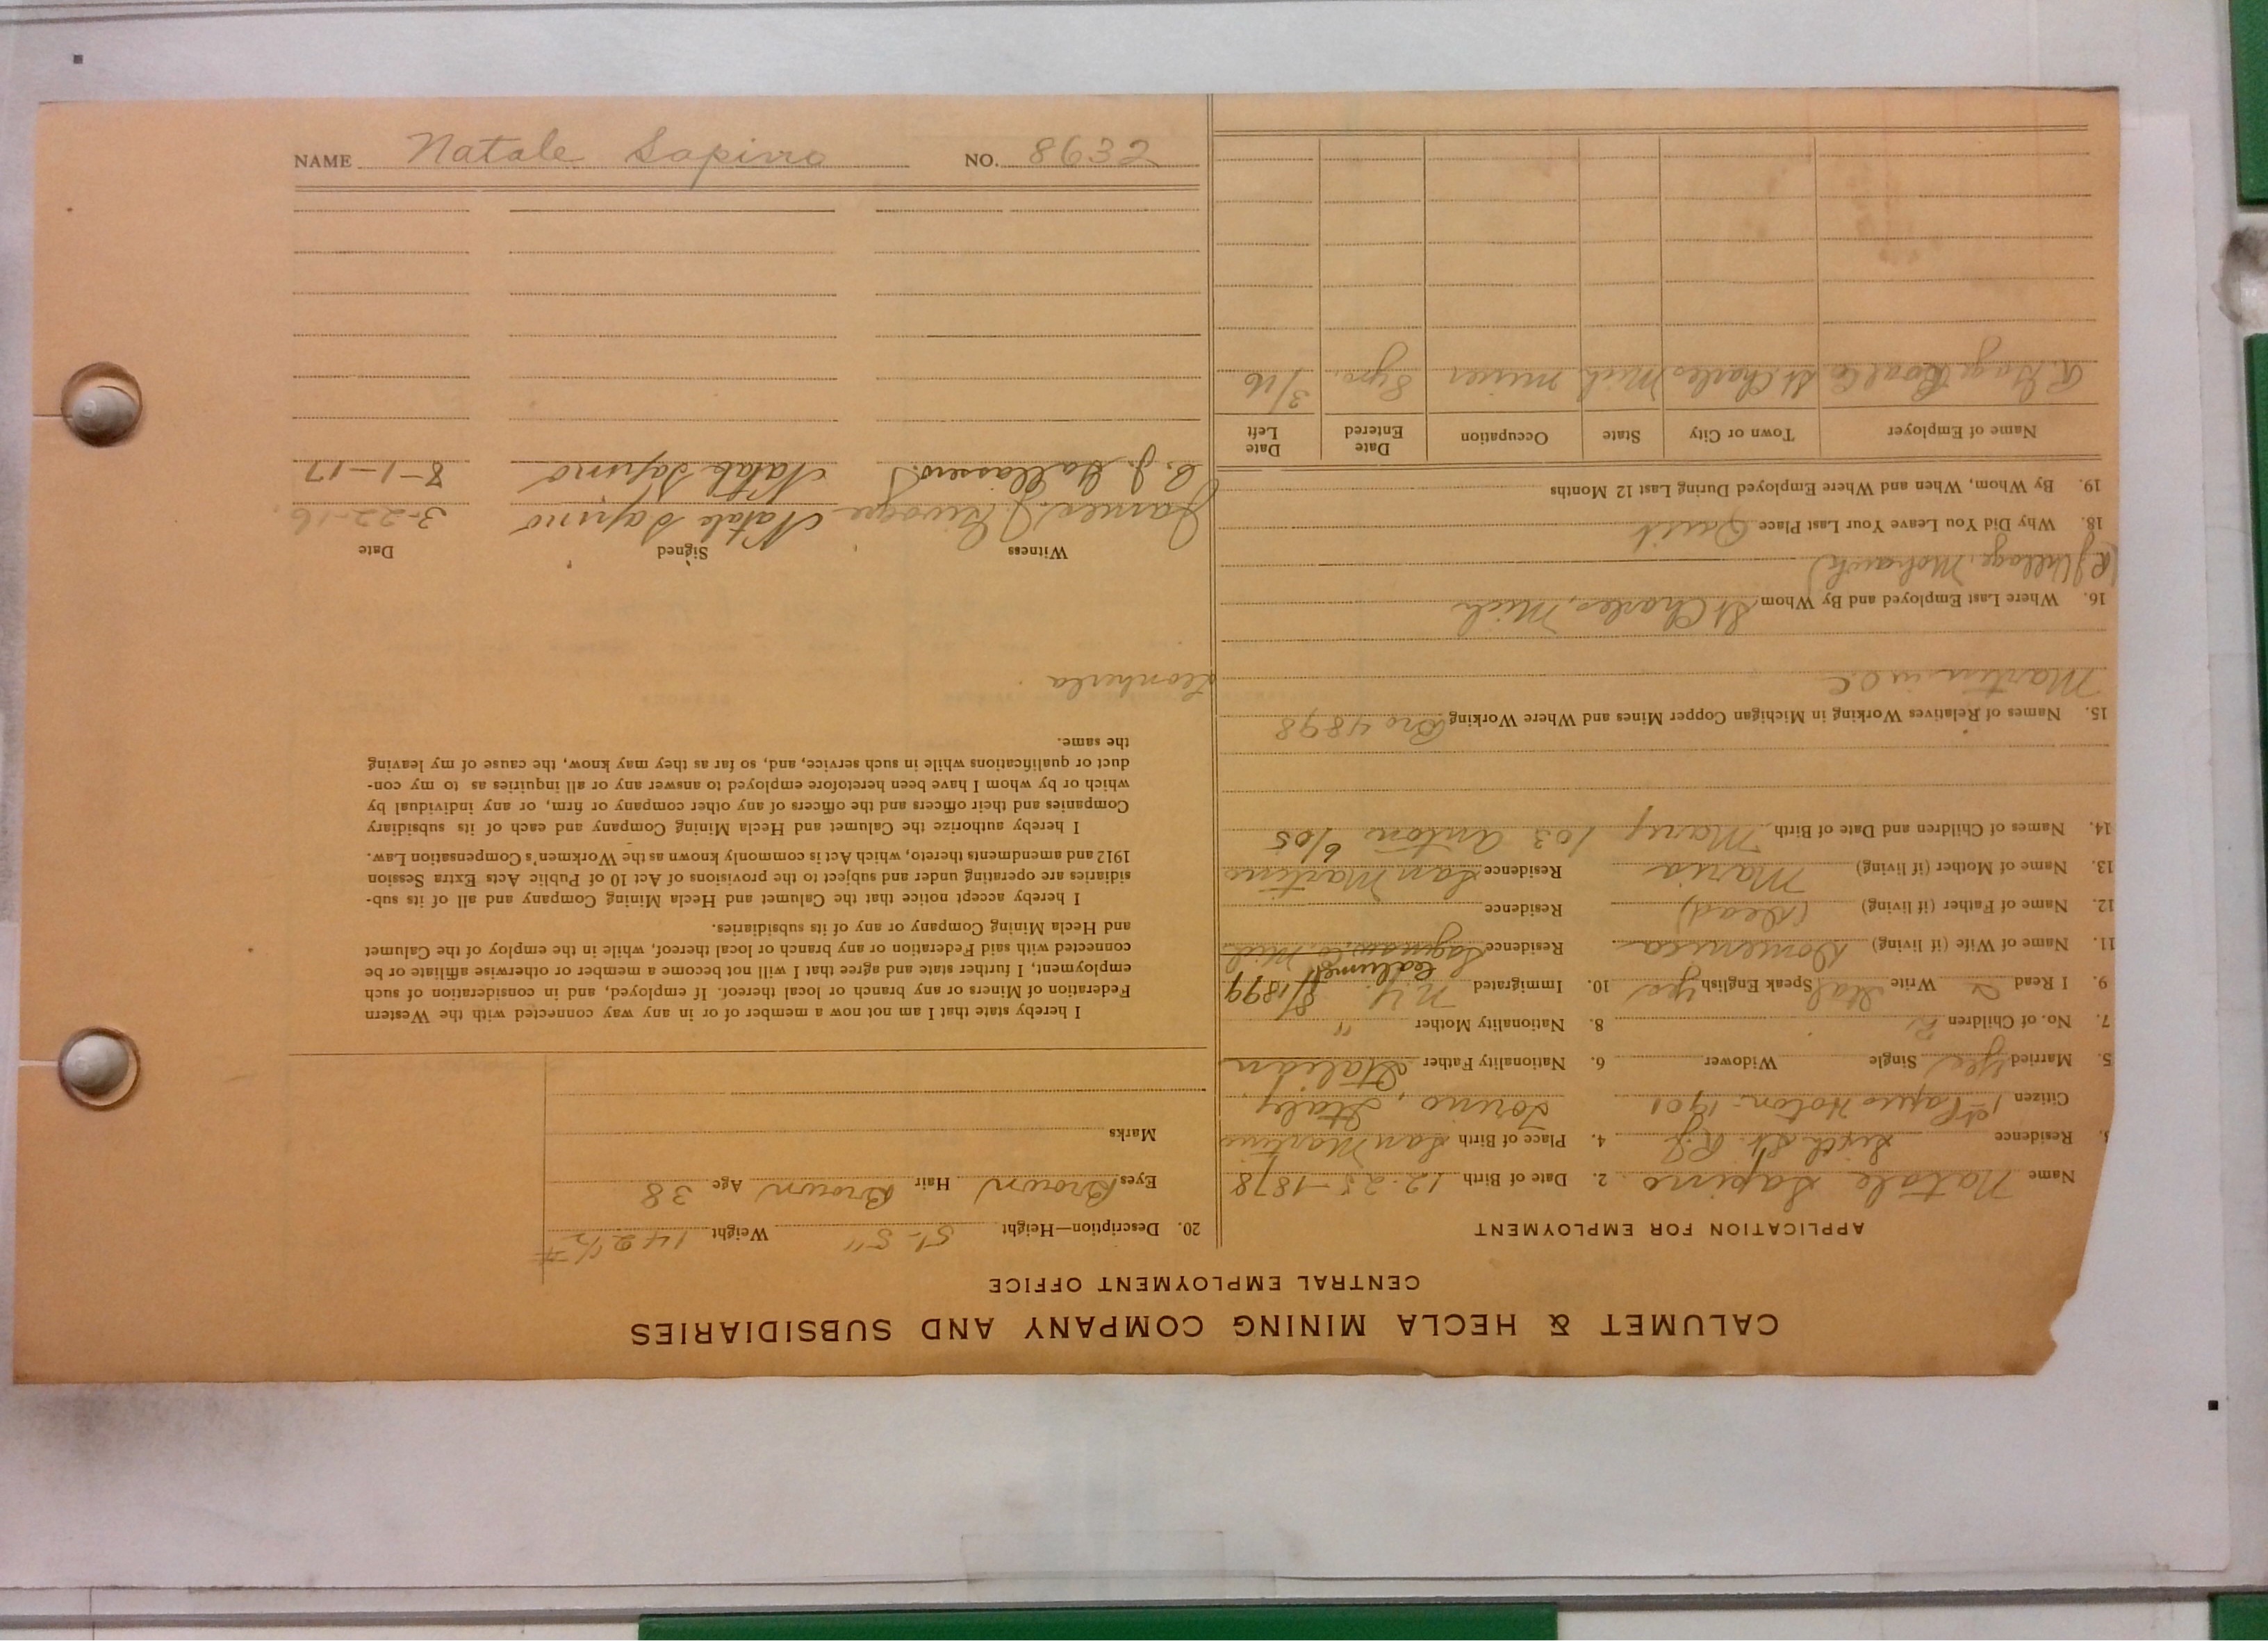 CALUMET & HECLA MINING COMPANY AND SUBSIDIARIES
CENTRAL EMPLOYMENT OFFICE
APPLICATION FOR EMPLOYMENT
Name Natale Sapino 2. Date of Birth 12-25-1878
3. Residence Sixth St. R.J. 4. Place of Birth San Martino
Citizen 1st Paper Hoton 1901 Torino, Italy
5. Married Yes Single Widower 6. Nationality Father Italian
7. No. of Children 2 8. Nationality Mother "
9. I Read & Write Ital Speak English yes 10. Immigrated N.Y. 8/1899
Calumet
11. Name of Wife (if living) Domenica Residence Saginaw Co Mich
12. Name of Father (if living) (Dead) Residence
13. Name of Mother (if living) Maria Residence San Martino
14. Names of Children and Date of Birth Mary 1/03 Anton 6/05
15. Names of Relatives Working in Michigan Copper Mines and Where Working Bro 4898
Martin in O.C.
16. Where Last Employed and By Whom St Charles, Mich
(R.J. Village, Mohawk)
18. Why Did You Leave Your Last Place Quit
19. By Whom, When and Where Employed During Last 12 Months
Name of Employer Town or City State Occupation Date Entered Date Left
Coal Co St Charles Mich miner 8 yrs. 3/16
20. Description—Height 5'-5" Weight 142 1/2 #
Eyes Brown Hair Brown Age 38
Marks
I hereby state that I am not now a member of or in any way connected with the Western
Federation of Miners or any branch or local thereof. If employed, and in consideration of such
employment, I further state and agree that I will not become a member or otherwise affiliate or be
connected with said Federation or any branch or local thereof, while in the employ of the Calumet
and Hecla Mining Company or any of its subsidiaries.
I hereby accept notice that the Calumet and Hecla Mining Company and all of its sub-
sidiaries are operating under and subject to the provisions of Act 10 of Public Acts Extra Session
1912 and amendments thereto, which Act is commonly known as the Workmen's Compensation Law.
I hereby authorize the Calumet and Hecla Mining Company and each of its subsidiary
Companies and their officers and the officers of any other company or firm, or any individual by
which or by whom I have been heretofore employed to answer any or all inquiries as to my con-
duct or qualifications while in such service, and, so far as they may know, the cause of my leaving
the same.
Witness Signed Date
James Natale Sapino 3-22-16
C. J. Natale Sapino 8-1-17
NAME Natale Sapino NO. 8632